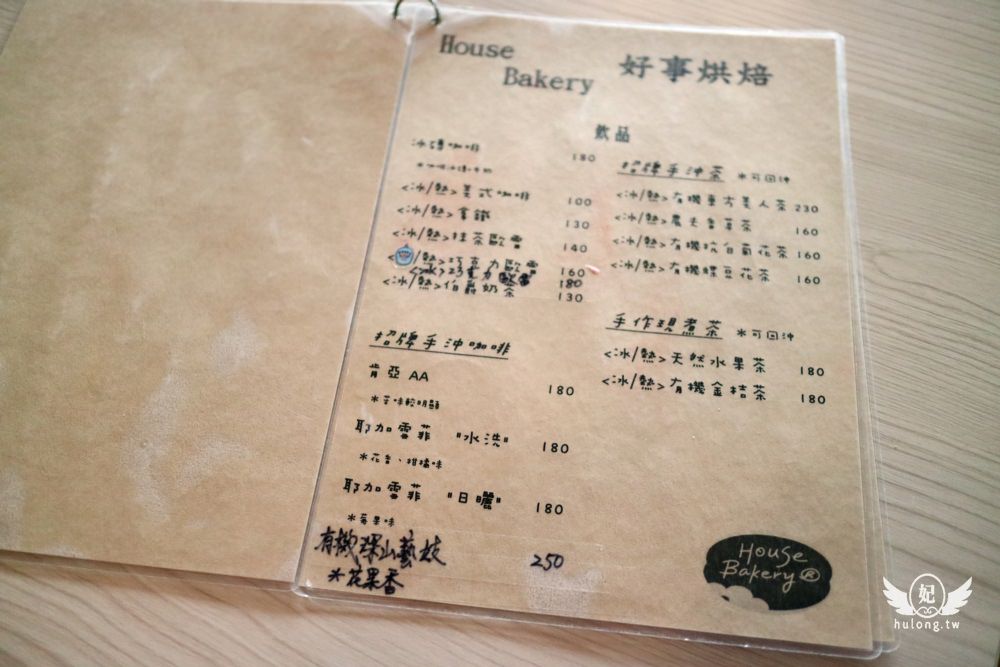 House
Bakery
好事烘焙
飲品
冰磚咖啡 180
<冰/熱>美式咖啡 100
<冰/熱>拿鐵 130
<冰/熱>抹茶歐蕾 140
/熱>巧克力歐蕾 160
<冰>巧克力歐蕾 180
<冰/熱>伯爵奶茶 130
招牌手沖咖啡
肯亞 AA 180
*苦味較明顯
耶加雪菲 "水洗" 180
*花香、柑橘味
耶加雪菲 "日曬" 180
*莓果味
有機深山藝妓 250
*花果香
招牌手沖茶 *可回沖
<冰/熱>有機東方美人茶 230
<冰/熱>農夫香草茶 160
<冰/熱>有機杭白菊花茶 160
<冰/熱>有機蝶豆花茶 160
手作現煮茶 *可回沖
<冰/熱>天然水果茶 180
<冰/熱>有機金桔茶 180
House
Bakery®
妃
hulong.tw